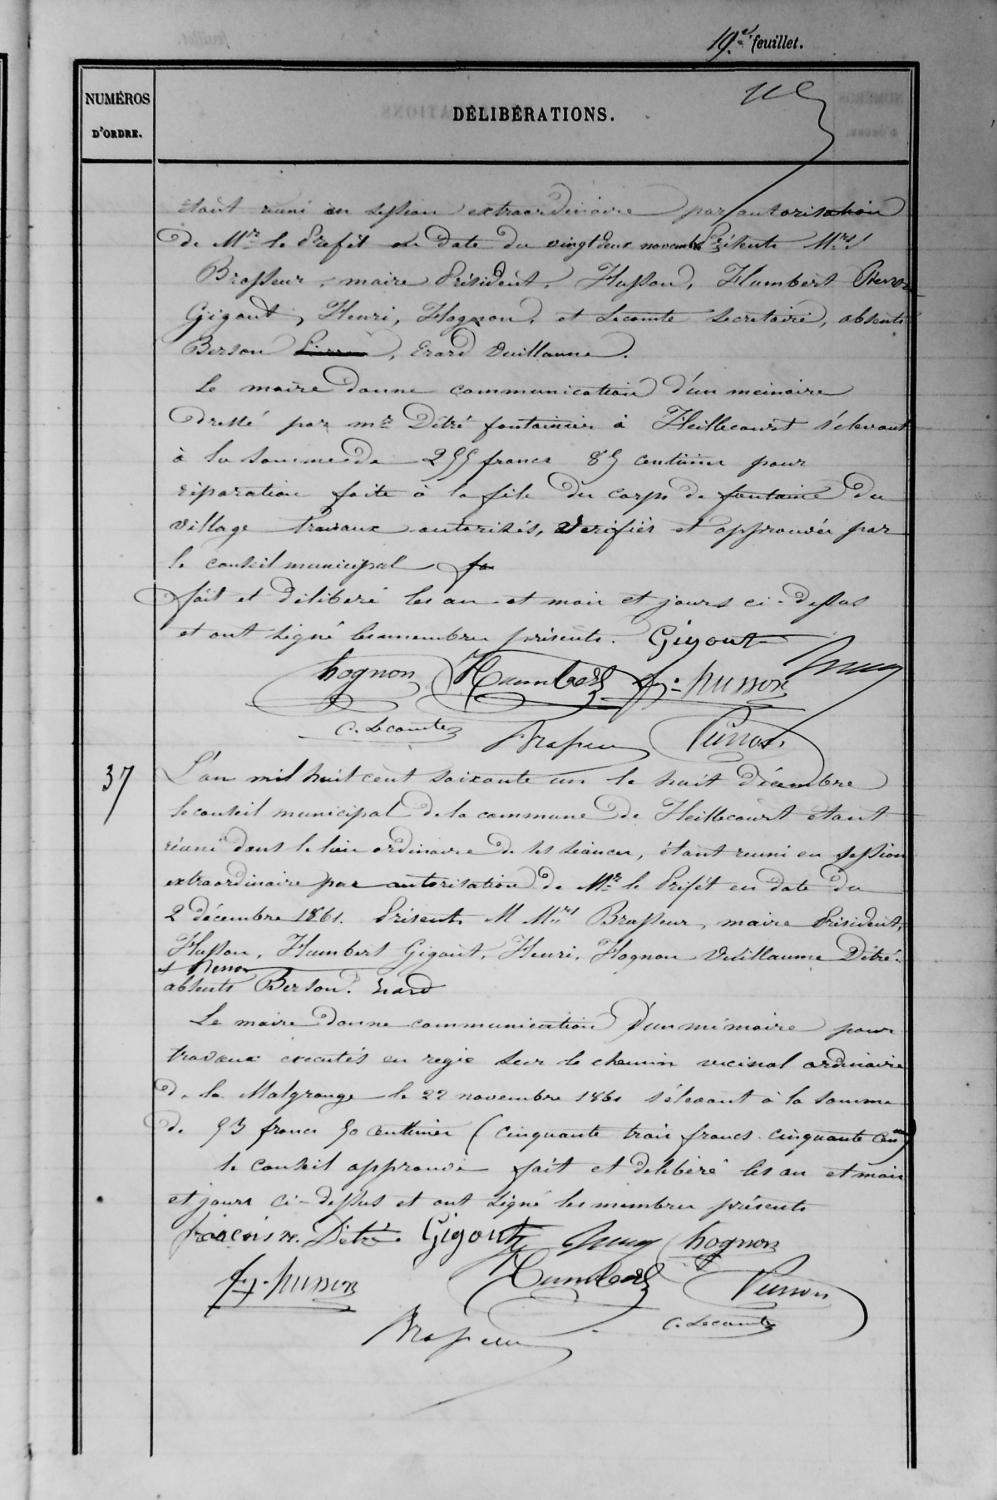 19.e feuillet.
NUMÉROS
D'ORDRE.
DÉLIBÉRATIONS.
étant réuni en session extraordinaire par autorisation
de Mr le Préfet en date du vingt deux novembre Présents Mrs
Brasseur, maire Président, Husson, Humbert Pierron
Gigout, Henri, Hognon, et Lecomte Secrétaire, absents
Berson Pierron, Erard Vuillaume.
Le maire donne communication d'un mémoire
dressé par mr Ditré fontainier à Heillecourt s'élevant
à la somme de 255 francs 85 centimes pour
réparation faite à la file du corps de fontaine du
village travaux autorisés, vérifiés et approuvés par
le conseil municipal fa
fait et délibéré les an et mois et jours ci-dessus
et ont signé les membres présents. Gigout
hognon Humbert f. husson henry
C. Lecomte Brasseur Pierron
37
L'an mil huit cent soixante un le huit décembre
le conseil municipal de la commune de Heillecourt étant
réuni dans le lieu ordinaire de ses séances, étant reuni en session
extraordinaire par autorisation de Mr le Préfet en date du
2 décembre 1861. Présents M Mrs Brasseur, maire Président,
Husson, Humbert Gigout, Henri, Hognon Vuillaume Ditré.
et Pierron
absents Berson. Erard
Le maire donne communication d'un mémoire pour
travaux exécutés en régie sur le chemin vicinal ordinaire
de la Malgrange le 22 novembre 1861 s'élevant à la somme
de 53 francs 50 centimes (cinquante trois francs cinquante cmes)
le conseil approuve fait et délibéré les an et mois
et jours ci-dessus et ont signé les membres présents
françois x. Ditré Gigout henry hognon
f. husson Humbert Pierron
Brasseur C. Lecomte